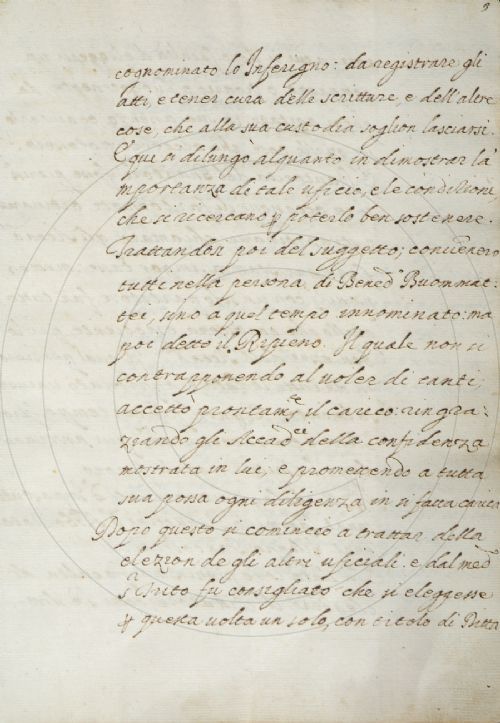 3
cognominato lo Inferigno: da registrare gli
atti, e tener cura delle scritture, e dell'altre
cose, che alla sua custodia soglion lasciarsi.
E qui si dilungò alquanto in dimostrar la
importanza di tale uficio, e le condizioni
che si ricercano p poterlo ben sostenere.
Trattandosi poi del suggetto; convennero
tutti nella persona di Bened.º Buommat-
tei, uno a quel tempo innominato: ma
poi detto il Ripieno. Il quale non si
contrapponendo al voler di tanti;
accettò prontam.te il carico: ringra-
ziando gli Accad.ci della confidenza
mostrata in lui, e promettendo a tutta
sua possa ogni diligenza in sì fatta carica
Dopo questo si cominciò a trattar della
elezzion degli altri uficiali. e dal med.
fu consigliato che si eleggesse
p questa volta un solo, con titolo di